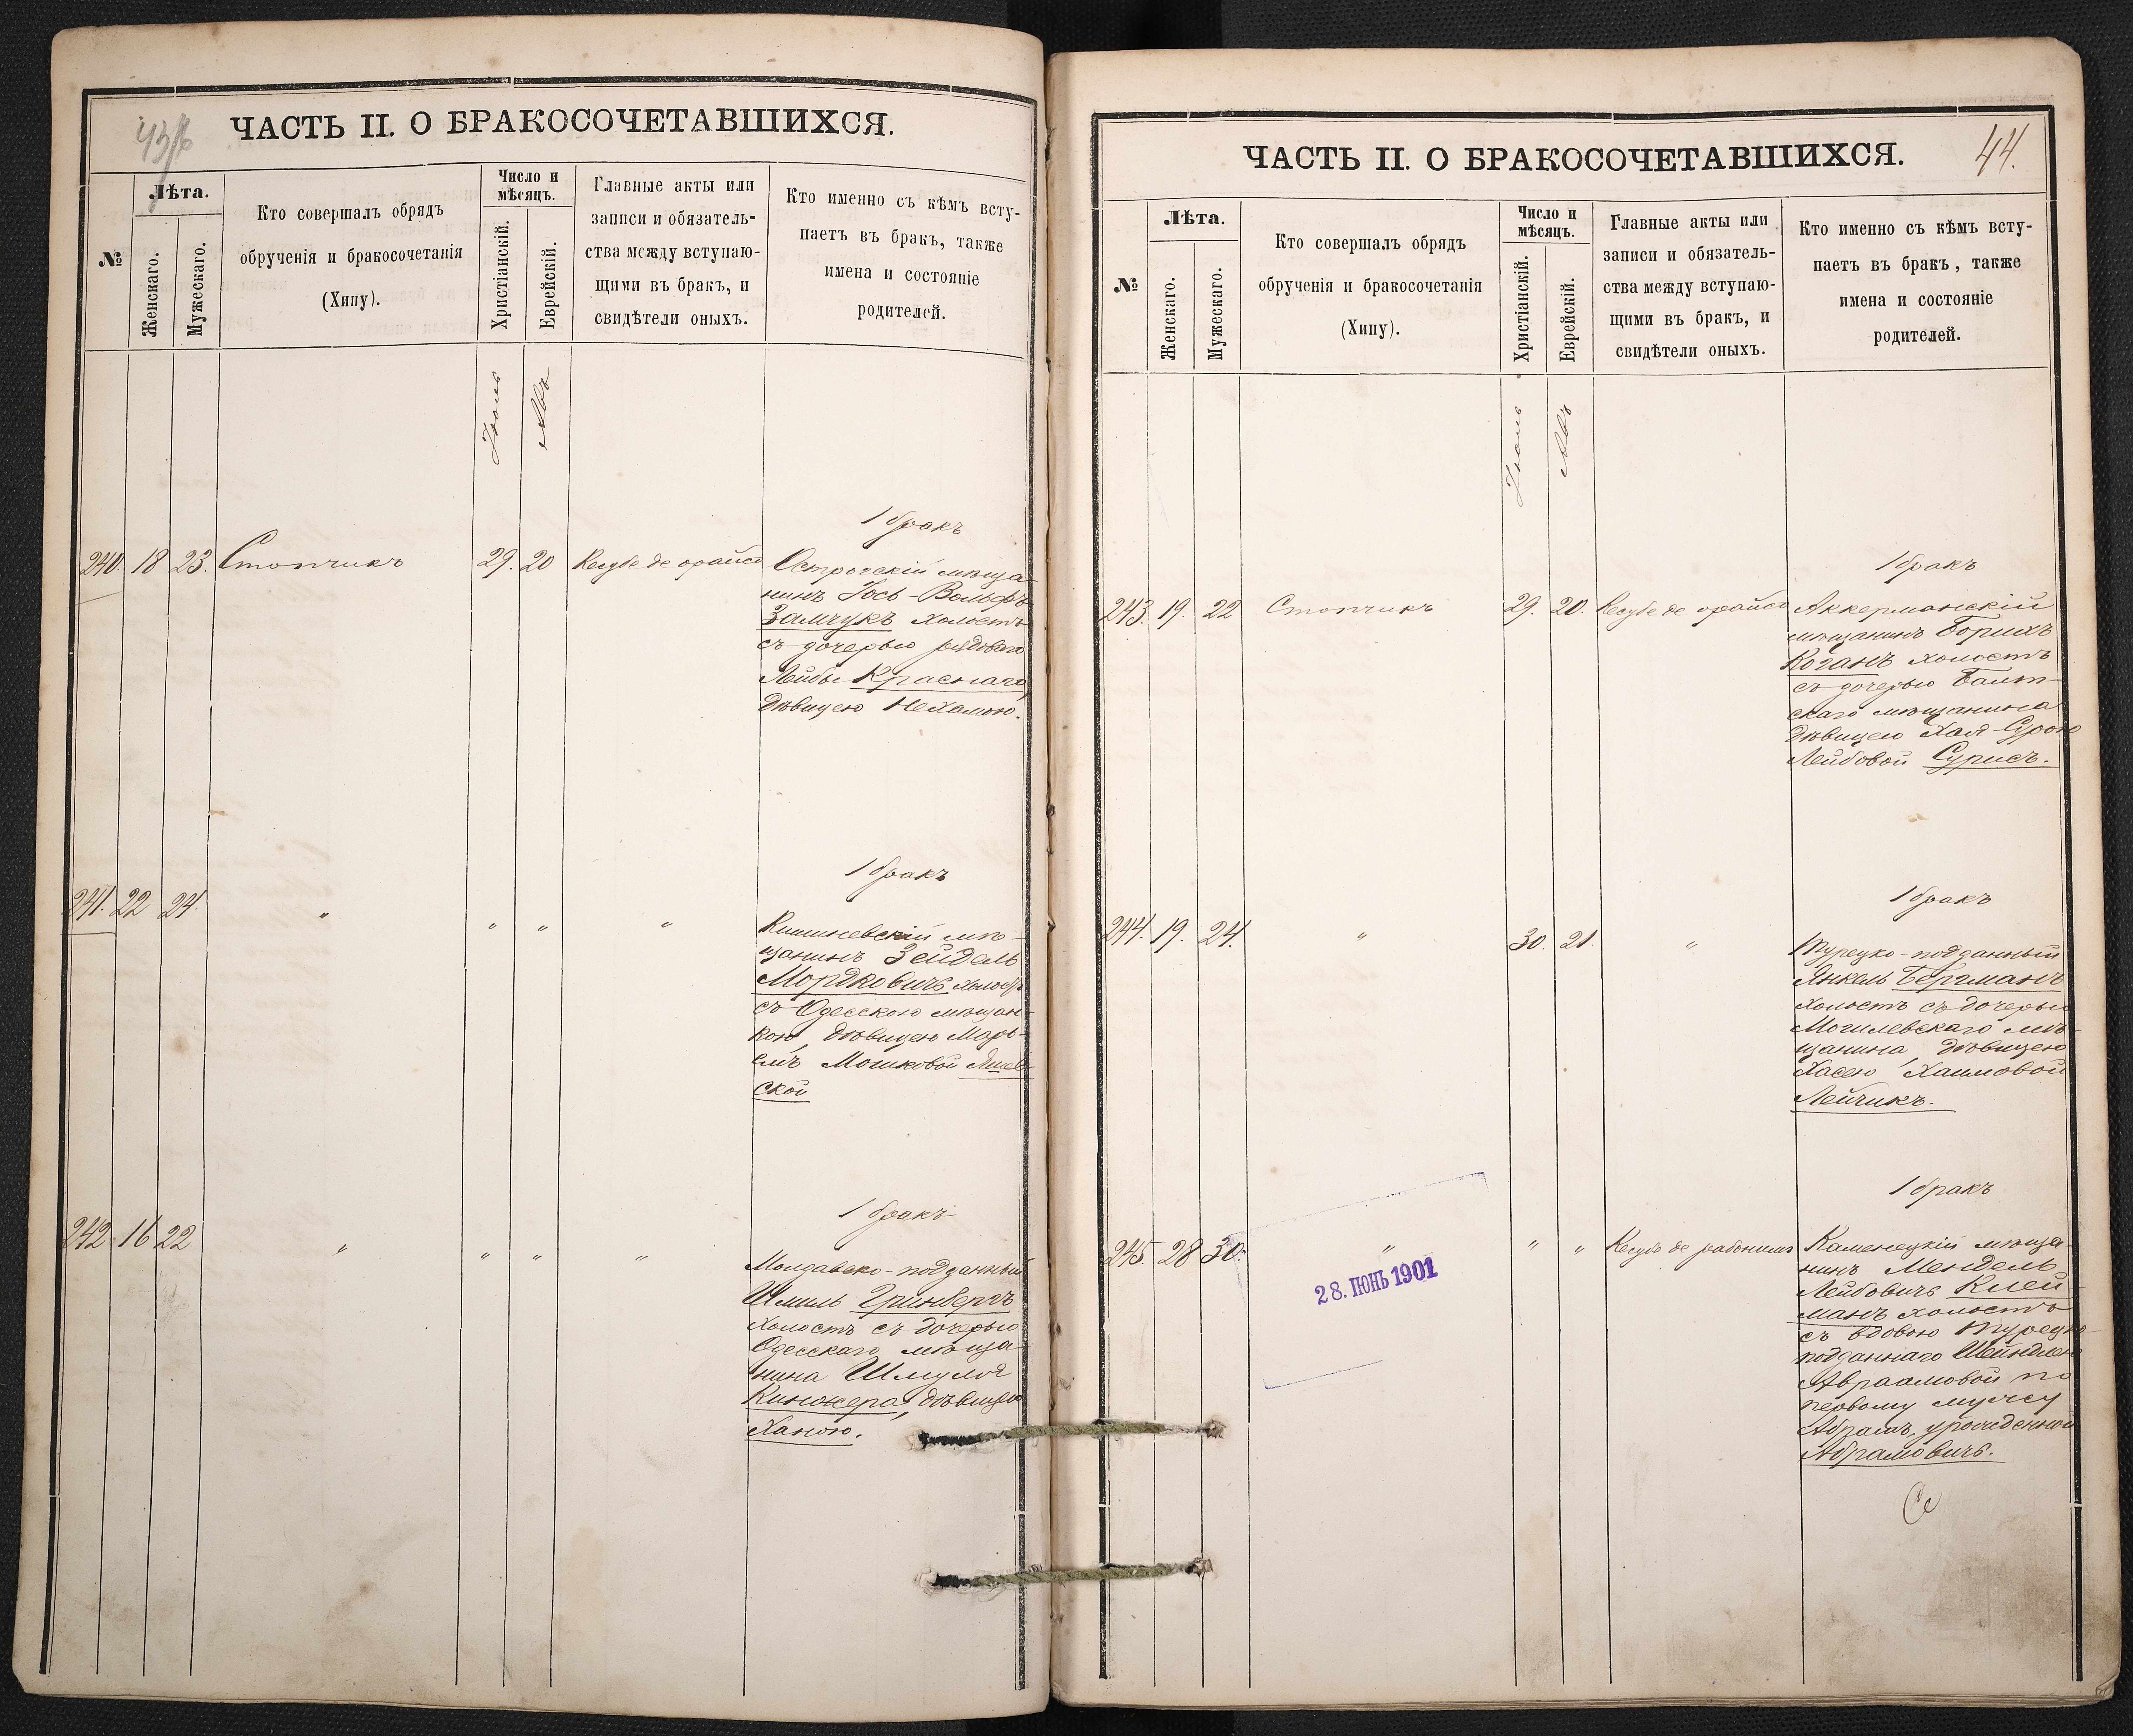 43/б
ЧАСТЬ II. О БРАКОСОЧЕТАВШИХСЯ.
№
Лѣта.
Женскаго.
Мужескаго.
Кто совершалъ обрядъ
обрученія и бракосочетанія
(Хипу).
Число и
мѣсяцъ.
Христіанскій.
Еврейскій.
Главные акты или
записи и обязатель-
ства между вступаю-
щими въ бракъ, и
свидѣтели оныхъ.
Кто именно съ кѣмъ всту-
паетъ въ бракъ, также
имена и состояніе
родителей.
Іюль
Авъ
1 бракъ
240. 18 23. Стопчикъ 29. 20 Кесубе де орайсо Острогскій мѣща-
нинъ Іось-Вольфъ
Замчукъ холостъ
съ дочерью рядового
Лейбы Краснаго,
дѣвицею Нехамою.
1 бракъ
241. 22 24. " " " " Кишиневскій мѣ-
щанинъ Зейдель
Мордковичъ холостъ
съ Одесскою мѣщан-
кою, дѣвицею Марь-
емъ Мошковой
ской
1 бракъ
242 16 22 " " " " Молдавско-подданный
Шмиль Гринбергъ
холостъ съ дочерью
Одесскаго мѣща-
нина Шмуля
Кинжера, дѣвицею
Ханою.
44.
ЧАСТЬ II. О БРАКОСОЧЕТАВШИХСЯ.
№
Лѣта.
Женскаго.
Мужескаго.
Кто совершалъ обрядъ
обрученія и бракосочетанія
(Хипу).
Число и
мѣсяцъ.
Христіанскій.
Еврейскій.
Главные акты или
записи и обязатель-
ства между вступаю-
щими въ бракъ, и
свидѣтели оныхъ.
Кто именно съ кѣмъ всту-
паетъ въ бракъ, также
имена и состояніе
родителей.
Іюль
Авъ
1 бракъ
243. 19. 22 Стопчикъ 29. 20. Кесубе де орайсо Аккерманскій
мѣщанинъ Борихъ
Коганъ холостъ
съ дочерью Балт-
скаго мѣщанина
дѣвицею Хая-Сурою
Лейбовой Сурисъ.
1 бракъ
244. 19. 24. " 30. 21. " Турецко-подданный
Янкель Бергманъ
холостъ съ дочерью
Могилевскаго мѣ-
щанина, дѣвицею
Хасею Хаимовой
Лейчикъ.
1 бракъ
245. 28 30. " " " Кесубе де рабонимъ Каменецкій мѣща-
нинъ Мендель
Лейбовичъ Клей-
манъ холостъ
съ вдовою Турецко-
подданнаго Шейндлею
Авраамовой по
первому мужу
Абрамъ, урожденной
Абрамовичъ.
28. ІЮНЬ 1901